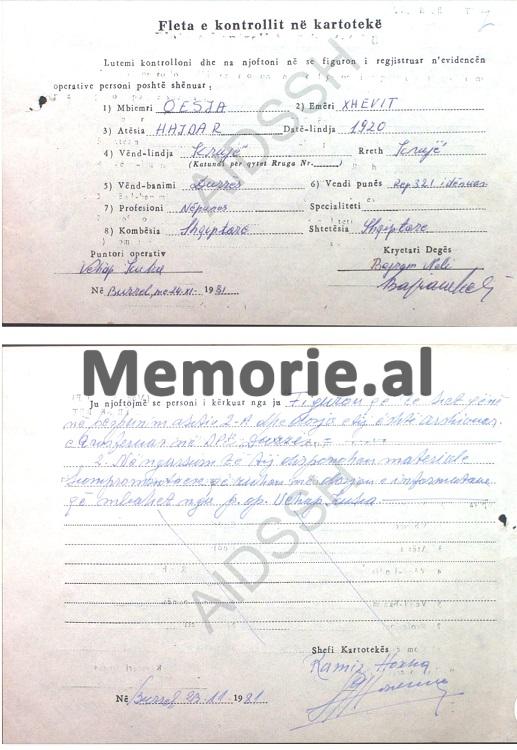 Fleta e kontrollit në kartotekë
Lutemi kontrolloni dhe na njoftoni në se figuron i regjistruar n'evidencën
operative personi poshtë shënuar:
1) Mbiemri QESJA 2) Emëri XHEVIT
3) Atësia HAJDAR Datë-lindja 1920
4) Vënd-lindja Krujë Rreth Krujë
(Katundi për qytet Rruga Nr.
5) Vënd-banimi Durrës 6) Vendi punës Rep 321 i dënuar
7) Profesioni Nëpunës Specialiteti
8) Kombësia Shqiptare Shtetësia Shqiptare
Puntori operativ Kryetari Degës
Vehap Kuka
Në Burrel, me 20.XI- 1981
AIDSSH
Memorie.al
Ju njoftojmë se personi i kërkuar nga ju Figuron që të jetë
në 2-A dhe dosja e tij është arshivuar
në DPB Durrës =
2. Në ngarkim të tij disponohen materiale
kompromentuese që ruhen në dosjen e informatave
që mbahet nga p. op. Vehap Kuka
AIDSSH
Shefi Kartotekës
Ramiz Hoxha
Në Burrel 23.11.1981